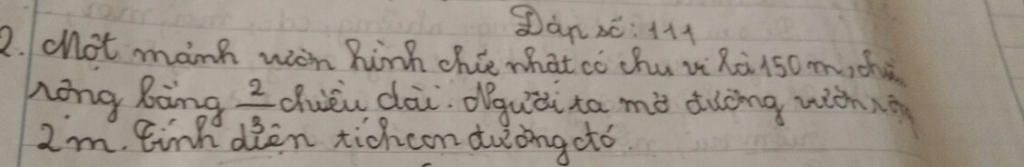 Đáp số: 111
2. Một mảnh vườn hình chữ nhật có chu vi là 150 m, chiều
rộng bằng 2/3 chiều dài. Người ta mở đường vườn rộng
2m. Tính diện tích con đường đó.